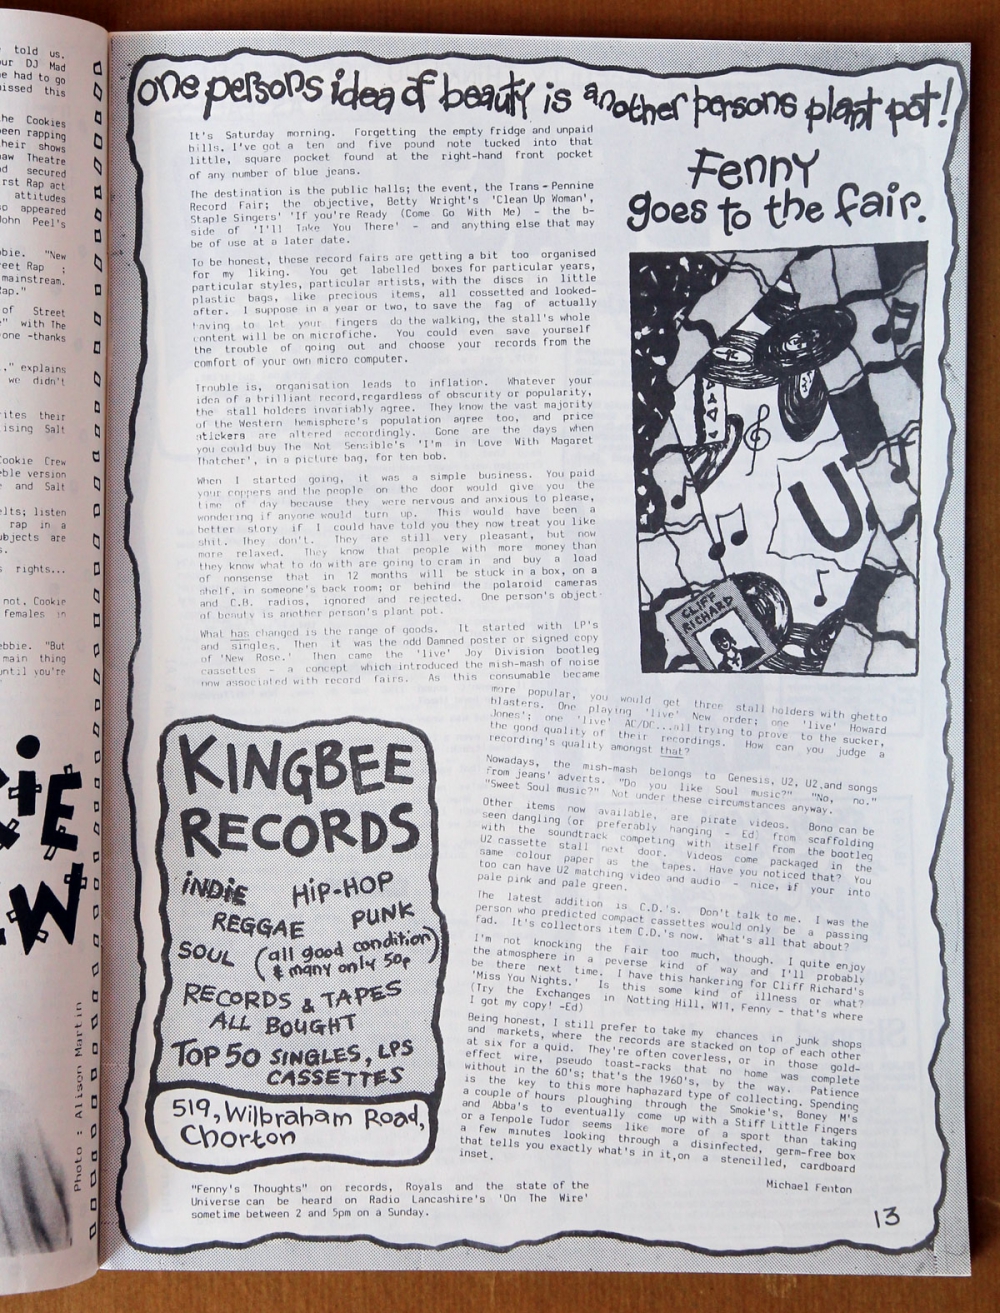 told us.
our DJ Mad
e had to go
missed this
the Cookies
been rapping
their shows
haw Theatre
nd secured
irst Rap act
attitudes
sp appeared
John Peel's
bie. "New
reet Rap :
mainstream.
Rap."
of Street
" with The
one -thanks
.," explains
we didn't
rites their
ising Salt
Cookie Crew
ble version
e and Salt
elts; listen
rap in a
bjects are
s.
s rights...
not, Cookie
females in
ebbie. "But
main thing
until you're
iE
W
Photo : Alison Martin
one persons idea of beauty is another persons plant pot!
Fenny
goes to the fair.
It's Saturday morning. Forgetting the empty fridge and unpaid
bills, I've got a ten and five pound note tucked into that
little, square pocket found at the right-hand front pocket
of any number of blue jeans.
The destination is the public halls; the event, the Trans-Pennine
Record Fair; the objective, Betty Wright's 'Clean Up Woman',
Staple Singers' 'If you're Ready (Come Go With Me) - the b-
side of 'I'll Take You There' - and anything else that may
be of use at a later date.
To be honest, these record fairs are getting a bit too organised
for my liking. You get labelled boxes for particular years,
particular styles, particular artists, with the discs in little
plastic bags, like precious items, all cossetted and looked-
after. I suppose in a year or two, to save the fag of actually
having to let your fingers do the walking, the stall's whole
content will be on microfiche. You could even save yourself
the trouble of going out and choose your records from the
comfort of your own micro computer.
Trouble is, organisation leads to inflation. Whatever your
idea of a brilliant record,regardless of obscurity or popularity,
the stall holders invariably agree. They know the vast majority
of the Western hemisphere's population agree too, and price
stickers are altered accordingly. Gone are the days when
you could buy The Not Sensible's 'I'm in Love With Magaret
Thatcher', in a picture bag, for ten bob.
When I started going, it was a simple business. You paid
your coppers and the people on the door would give you the
time of day because they were nervous and anxious to please,
wondering if anyone would turn up. This would have been a
better story if I could have told you they now treat you like
shit. They don't. They are still very pleasant, but now
more relaxed. They know that people with more money than
they know what to do with are going to cram in and buy a load
of nonsense that in 12 months will be stuck in a box, on a
shelf, in someone's back room; or behind the polaroid cameras
and C.B. radios, ignored and rejected. One person's object
of beauty is another person's plant pot.
What has changed is the range of goods. It started with LP's
and singles. Then it was the odd Damned poster or signed copy
of 'New Rose.' Then came the 'live' Joy Division bootleg
cassettes - a concept which introduced the mish-mash of noise
now associated with record fairs. As this consumable became
more popular, you would get three stall holders with ghetto
blasters. One playing 'live' New order; one 'live' Howard
Jones'; one 'live' AC/DC...all trying to prove to the sucker,
the good quality of their recordings. How can you judge a
recording's quality amongst that?
Nowadays, the mish-mash belongs to Genesis, U2, U2,and songs
from jeans' adverts. "Do you like Soul music?" "No, no."
"Sweet Soul music?" Not under these circumstances anyway.
Other items now available, are pirate videos. Bono can be
seen dangling (or preferably hanging - Ed) from scaffolding
with the soundtrack competing with itself from the bootleg
U2 cassette stall next door. Videos come packaged in the
same colour paper as the tapes. Have you noticed that? You
too can have U2 matching video and audio - nice, if your into
pale pink and pale green.
The latest addition is C.D.'s. Don't talk to me. I was the
person who predicted compact cassettes would only be a passing
fad. It's collectors item C.D.'s now. What's all that about?
I'm not knocking the Fair too much, though. I quite enjoy
the atmosphere in a peverse kind of way and I'll probably
be there next time. I have this hankering for Cliff Richard's
'Miss You Nights.' Is this some kind of illness or what?
(Try the Exchanges in Notting Hill, W11, Fenny - that's where
I got my copy! -Ed)
Being honest, I still prefer to take my chances in junk shops
and markets, where the records are stacked on top of each other
at six for a quid. They're often coverless, or in those gold-
effect wire, pseudo toast-racks that no home was complete
without in the 60's; that's the 1960's, by the way. Patience
is the key to this more haphazard type of collecting. Spending
a couple of hours ploughing through the Smokie's, Boney M's
and Abba's to eventually come up with a Stiff Little Fingers
or a Tenpole Tudor seems like more of a sport than taking
a few minutes looking through a disinfected, germ-free box
that tells you exactly what's in it,on a stencilled, cardboard
inset.
Michael Fenton
U
CLIFF
RICHARD
KINGBEE
RECORDS
iNDiE HiP-HOP
REGGAE PUNK
SOUL (all good condition)
& many only 50p
RECORDS & TAPES
ALL BOUGHT
TOP 50 SINGLES, LPS
CASSETTES
519, Wilbraham Road,
Chorton
"Fenny's Thoughts" on records, Royals and the state of the
Universe can be heard on Radio Lancashire's 'On The Wire'
sometime between 2 and 5pm on a Sunday.
13